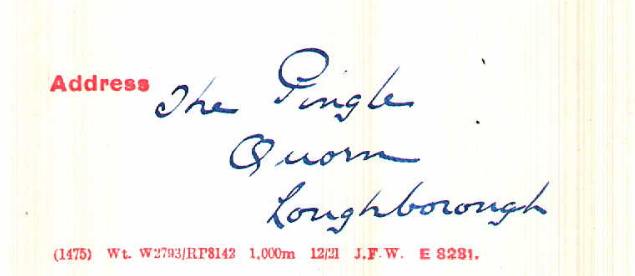 Address The Pingle
Quorn
Loughborough
(1475) Wt. W2793/RP8142 1,000m 12/21 J.F.W. E 8281.